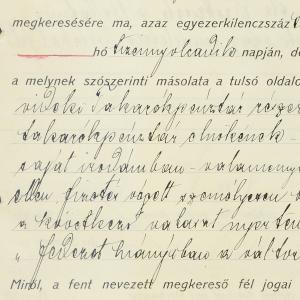 megkeresésére ma, azaz egyezerkilenczszáz
hó tizennyolcadik napján, de
a melynek szószerinti másolata a tulsó oldalo
vidéki Takarékpénztár része
takarékpénztár elnökének
saját irodámban valameny
ellen fizetés végett személyesen
a következő választ nyertem
„Fedezet hiányában a váltó
Miről, a fent nevezett megkereső fél jogai